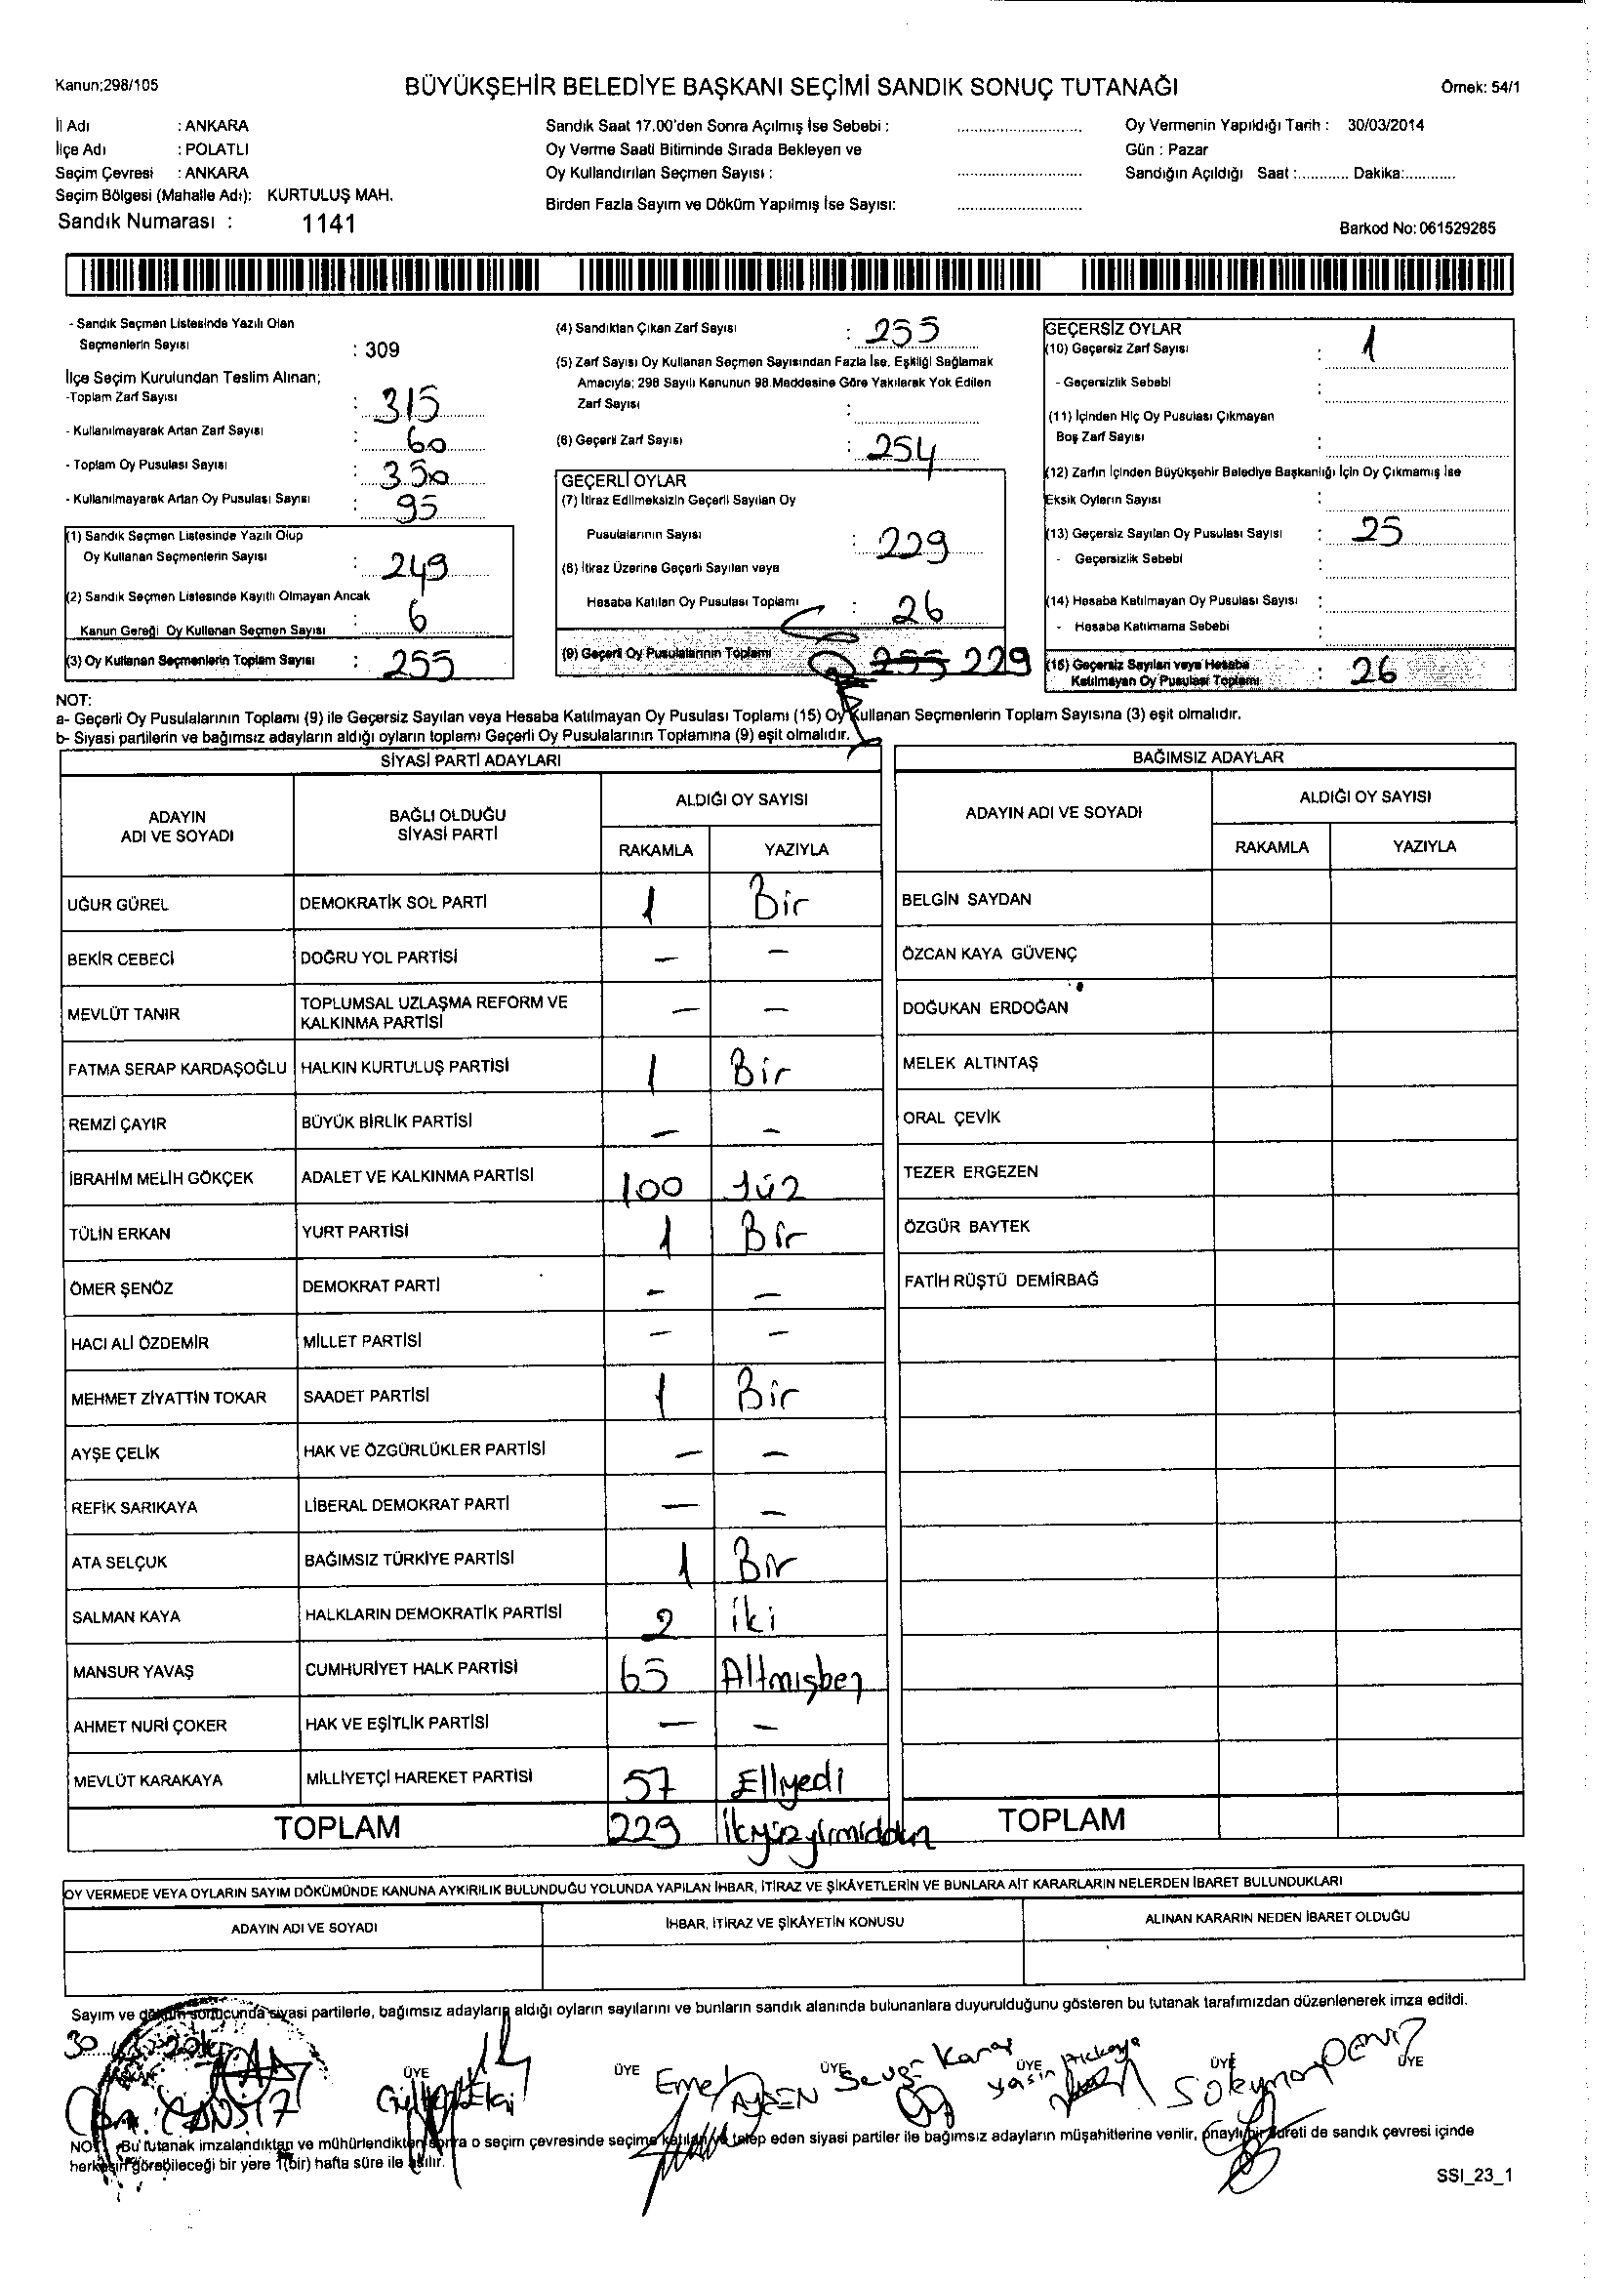 Kanun:298/105
BÜYÜKŞEHİR BELEDİYE BAŞKANI SEÇİMİ SANDIK SONUÇ TUTANAĞI
Örnek: 54/1
İl Adı : ANKARA
İlçe Adı : POLATLI
Seçim Çevresi : ANKARA
Seçim Bölgesi (Mahalle Adı): KURTULUŞ MAH.
Sandık Numarası : 1141
Sandık Saat 17.00'den Sonra Açılmış İse Sebebi :
Oy Verme Saati Bitiminde Sırada Bekleyen ve
Oy Kullandırılan Seçmen Sayısı :
Birden Fazla Sayım ve Döküm Yapılmış İse Sayısı:
Oy Vermenin Yapıldığı Tarih : 30/03/2014
Gün : Pazar
Sandığın Açıldığı Saat :............ Dakika:............
Barkod No: 061529285
- Sandık Seçmen Listesinde Yazılı Olan
Seçmenlerin Sayısı : 309
İlçe Seçim Kurulundan Teslim Alınan;
-Toplam Zarf Sayısı : 315
- Kullanılmayarak Artan Zarf Sayısı : 60
- Toplam Oy Pusulası Sayısı : 350
- Kullanılmayarak Artan Oy Pusulası Sayısı : 95
(1) Sandık Seçmen Listesinde Yazılı Olup
Oy Kullanan Seçmenlerin Sayısı : 249
(2) Sandık Seçmen Listesinde Kayıtlı Olmayan Ancak
Kanun Gereği Oy Kullanan Seçmen Sayısı : 6
(3) Oy Kullanan Seçmenlerin Toplam Sayısı : 255
(4) Sandıktan Çıkan Zarf Sayısı : 255
(5) Zarf Sayısı Oy Kullanan Seçmen Sayısından Fazla İse, Eşitliği Sağlamak
Amacıyla; 298 Sayılı Kanunun 98.Maddesine Göre Yakılarak Yok Edilen
Zarf Sayısı :
(6) Geçerli Zarf Sayısı : 254
GEÇERLİ OYLAR
(7) İtiraz Edilmeksizin Geçerli Sayılan Oy
Pusulalarının Sayısı : 229
(8) İtiraz Üzerine Geçerli Sayılan veya
Hesaba Katılan Oy Pusulası Toplamı : 26
(9) Geçerli Oy Pusulalarının Toplamı 255 229
GEÇERSİZ OYLAR
(10) Geçersiz Zarf Sayısı : 1
- Geçersizlik Sebebi :
(11) İçinden Hiç Oy Pusulası Çıkmayan
Boş Zarf Sayısı :
(12) Zarfın İçinden Büyükşehir Belediye Başkanlığı İçin Oy Çıkmamış İse
Eksik Oyların Sayısı :
(13) Geçersiz Sayılan Oy Pusulası Sayısı : 25
- Geçersizlik Sebebi :
(14) Hesaba Katılmayan Oy Pusulası Sayısı :
- Hesaba Katılmama Sebebi :
(15) Geçersiz Sayılan veya Hesaba
Katılmayan Oy Pusulası Toplamı : 26
NOT:
a- Geçerli Oy Pusulalarının Toplamı (9) ile Geçersiz Sayılan veya Hesaba Katılmayan Oy Pusulası Toplamı (15) Oy Kullanan Seçmenlerin Toplam Sayısına (3) eşit olmalıdır.
b- Siyasi partilerin ve bağımsız adayların aldığı oyların toplamı Geçerli Oy Pusulalarının Toplamına (9) eşit olmalıdır.
SİYASİ PARTİ ADAYLARI
ADAYIN ADI VE SOYADI BAĞLI OLDUĞU SİYASİ PARTİ ALDIĞI OY SAYISI
RAKAMLA YAZIYLA
UĞUR GÜREL DEMOKRATİK SOL PARTİ 1 Bir
BEKİR CEBECİ DOĞRU YOL PARTİSİ - -
MEVLÜT TANIR TOPLUMSAL UZLAŞMA REFORM VE KALKINMA PARTİSİ - -
FATMA SERAP KARDAŞOĞLU HALKIN KURTULUŞ PARTİSİ 1 Bir
REMZİ ÇAYIR BÜYÜK BİRLİK PARTİSİ - -
İBRAHİM MELİH GÖKÇEK ADALET VE KALKINMA PARTİSİ 100 Yüz
TÜLİN ERKAN YURT PARTİSİ 1 Bir
ÖMER ŞENÖZ DEMOKRAT PARTİ - -
HACI ALİ ÖZDEMİR MİLLET PARTİSİ - -
MEHMET ZİYATTİN TOKAR SAADET PARTİSİ 1 Bir
AYŞE ÇELİK HAK VE ÖZGÜRLÜKLER PARTİSİ - -
REFİK SARIKAYA LİBERAL DEMOKRAT PARTİ - -
ATA SELÇUK BAĞIMSIZ TÜRKİYE PARTİSİ 1 Bir
SALMAN KAYA HALKLARIN DEMOKRATİK PARTİSİ 2 iki
MANSUR YAVAŞ CUMHURİYET HALK PARTİSİ 65 Altmışbeş
AHMET NURİ ÇOKER HAK VE EŞİTLİK PARTİSİ - -
MEVLÜT KARAKAYA MİLLİYETÇİ HAREKET PARTİSİ 57 Elliyedi
TOPLAM 229
BAĞIMSIZ ADAYLAR
ADAYIN ADI VE SOYADI ALDIĞI OY SAYISI
RAKAMLA YAZIYLA
BELGİN SAYDAN
ÖZCAN KAYA GÜVENÇ
DOĞUKAN ERDOĞAN
MELEK ALTINTAŞ
ORAL ÇEVİK
TEZER ERGEZEN
ÖZGÜR BAYTEK
FATİH RÜŞTÜ DEMİRBAĞ
TOPLAM
OY VERMEDE VEYA OYLARIN SAYIM DÖKÜMÜNDE KANUNA AYKIRILIK BULUNDUĞU YOLUNDA YAPILAN İHBAR, İTİRAZ VE ŞİKÂYETLERİN VE BUNLARA AİT KARARLARIN NELERDEN İBARET BULUNDUKLARI
ADAYIN ADI VE SOYADI İHBAR, İTİRAZ VE ŞİKÂYETİN KONUSU ALINAN KARARIN NEDEN İBARET OLDUĞU
Sayım ve döküm sonucunda siyasi partilerle, bağımsız adayların aldığı oyların sayılarını ve bunların sandık alanında bulunanlara duyurulduğunu gösteren bu tutanak tarafımızdan düzenlenerek imza edildi.
30
BAŞKAN ÜYE ÜYE ÜYE ÜYE ÜYE ÜYE
NOT: Bu tutanak imzalandıktan ve mühürlendikten sonra o seçim çevresinde seçime katılan ve talep eden siyasi partiler ile bağımsız adayların müşahitlerine verilir, onaylı bir sureti de sandık çevresi içinde
herkesin görebileceği bir yere 1(bir) hafta süre ile asılır.
SSI_23_1